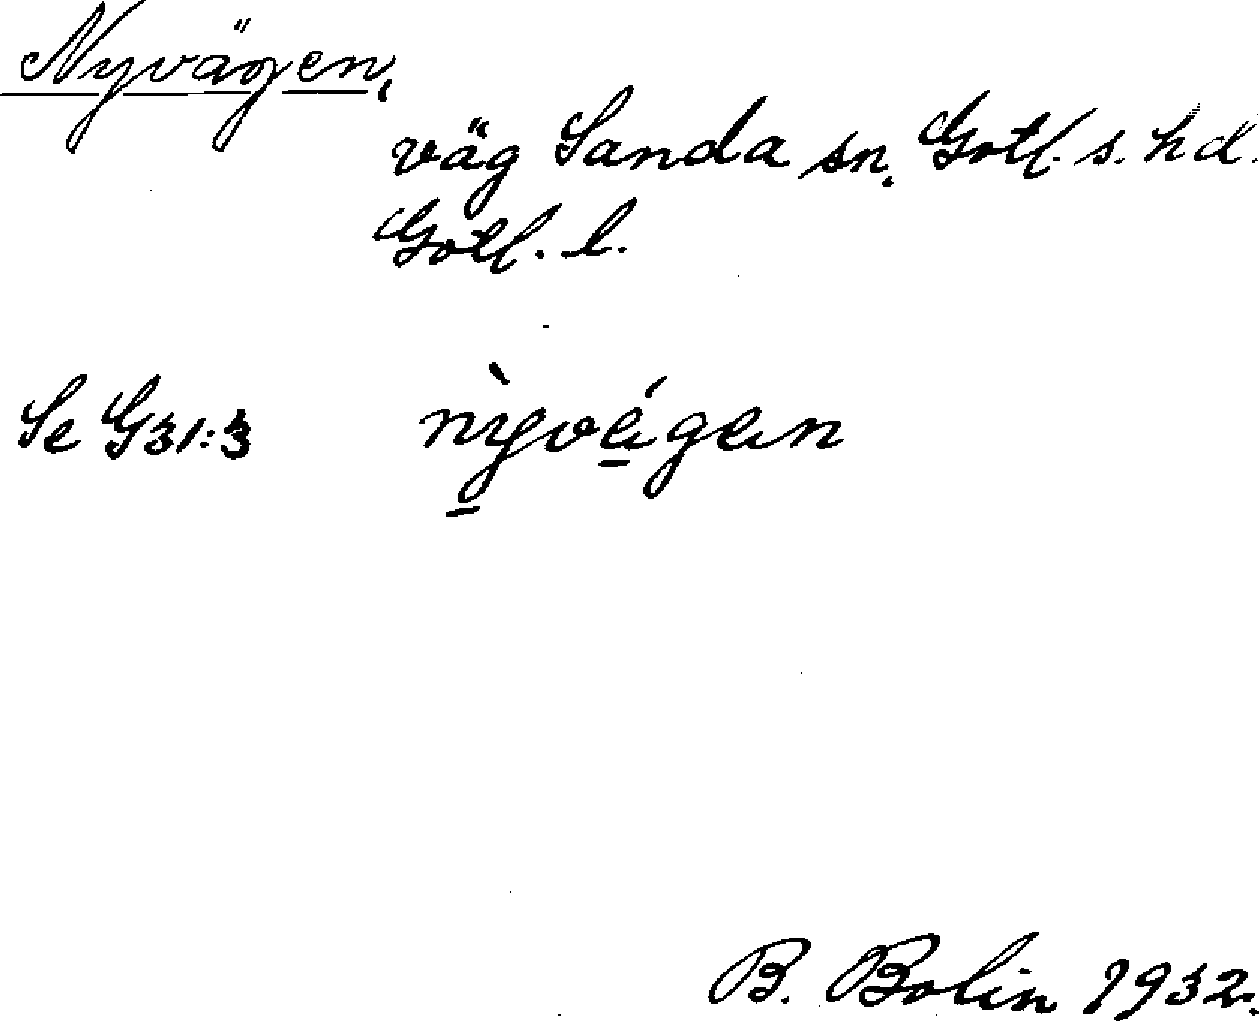 Nyvägen,
väg Sanda sn. Gotl. s. hd.
Gotl. l.
Se G31:3 nỳvǽgæn
B. Bolin 1932.